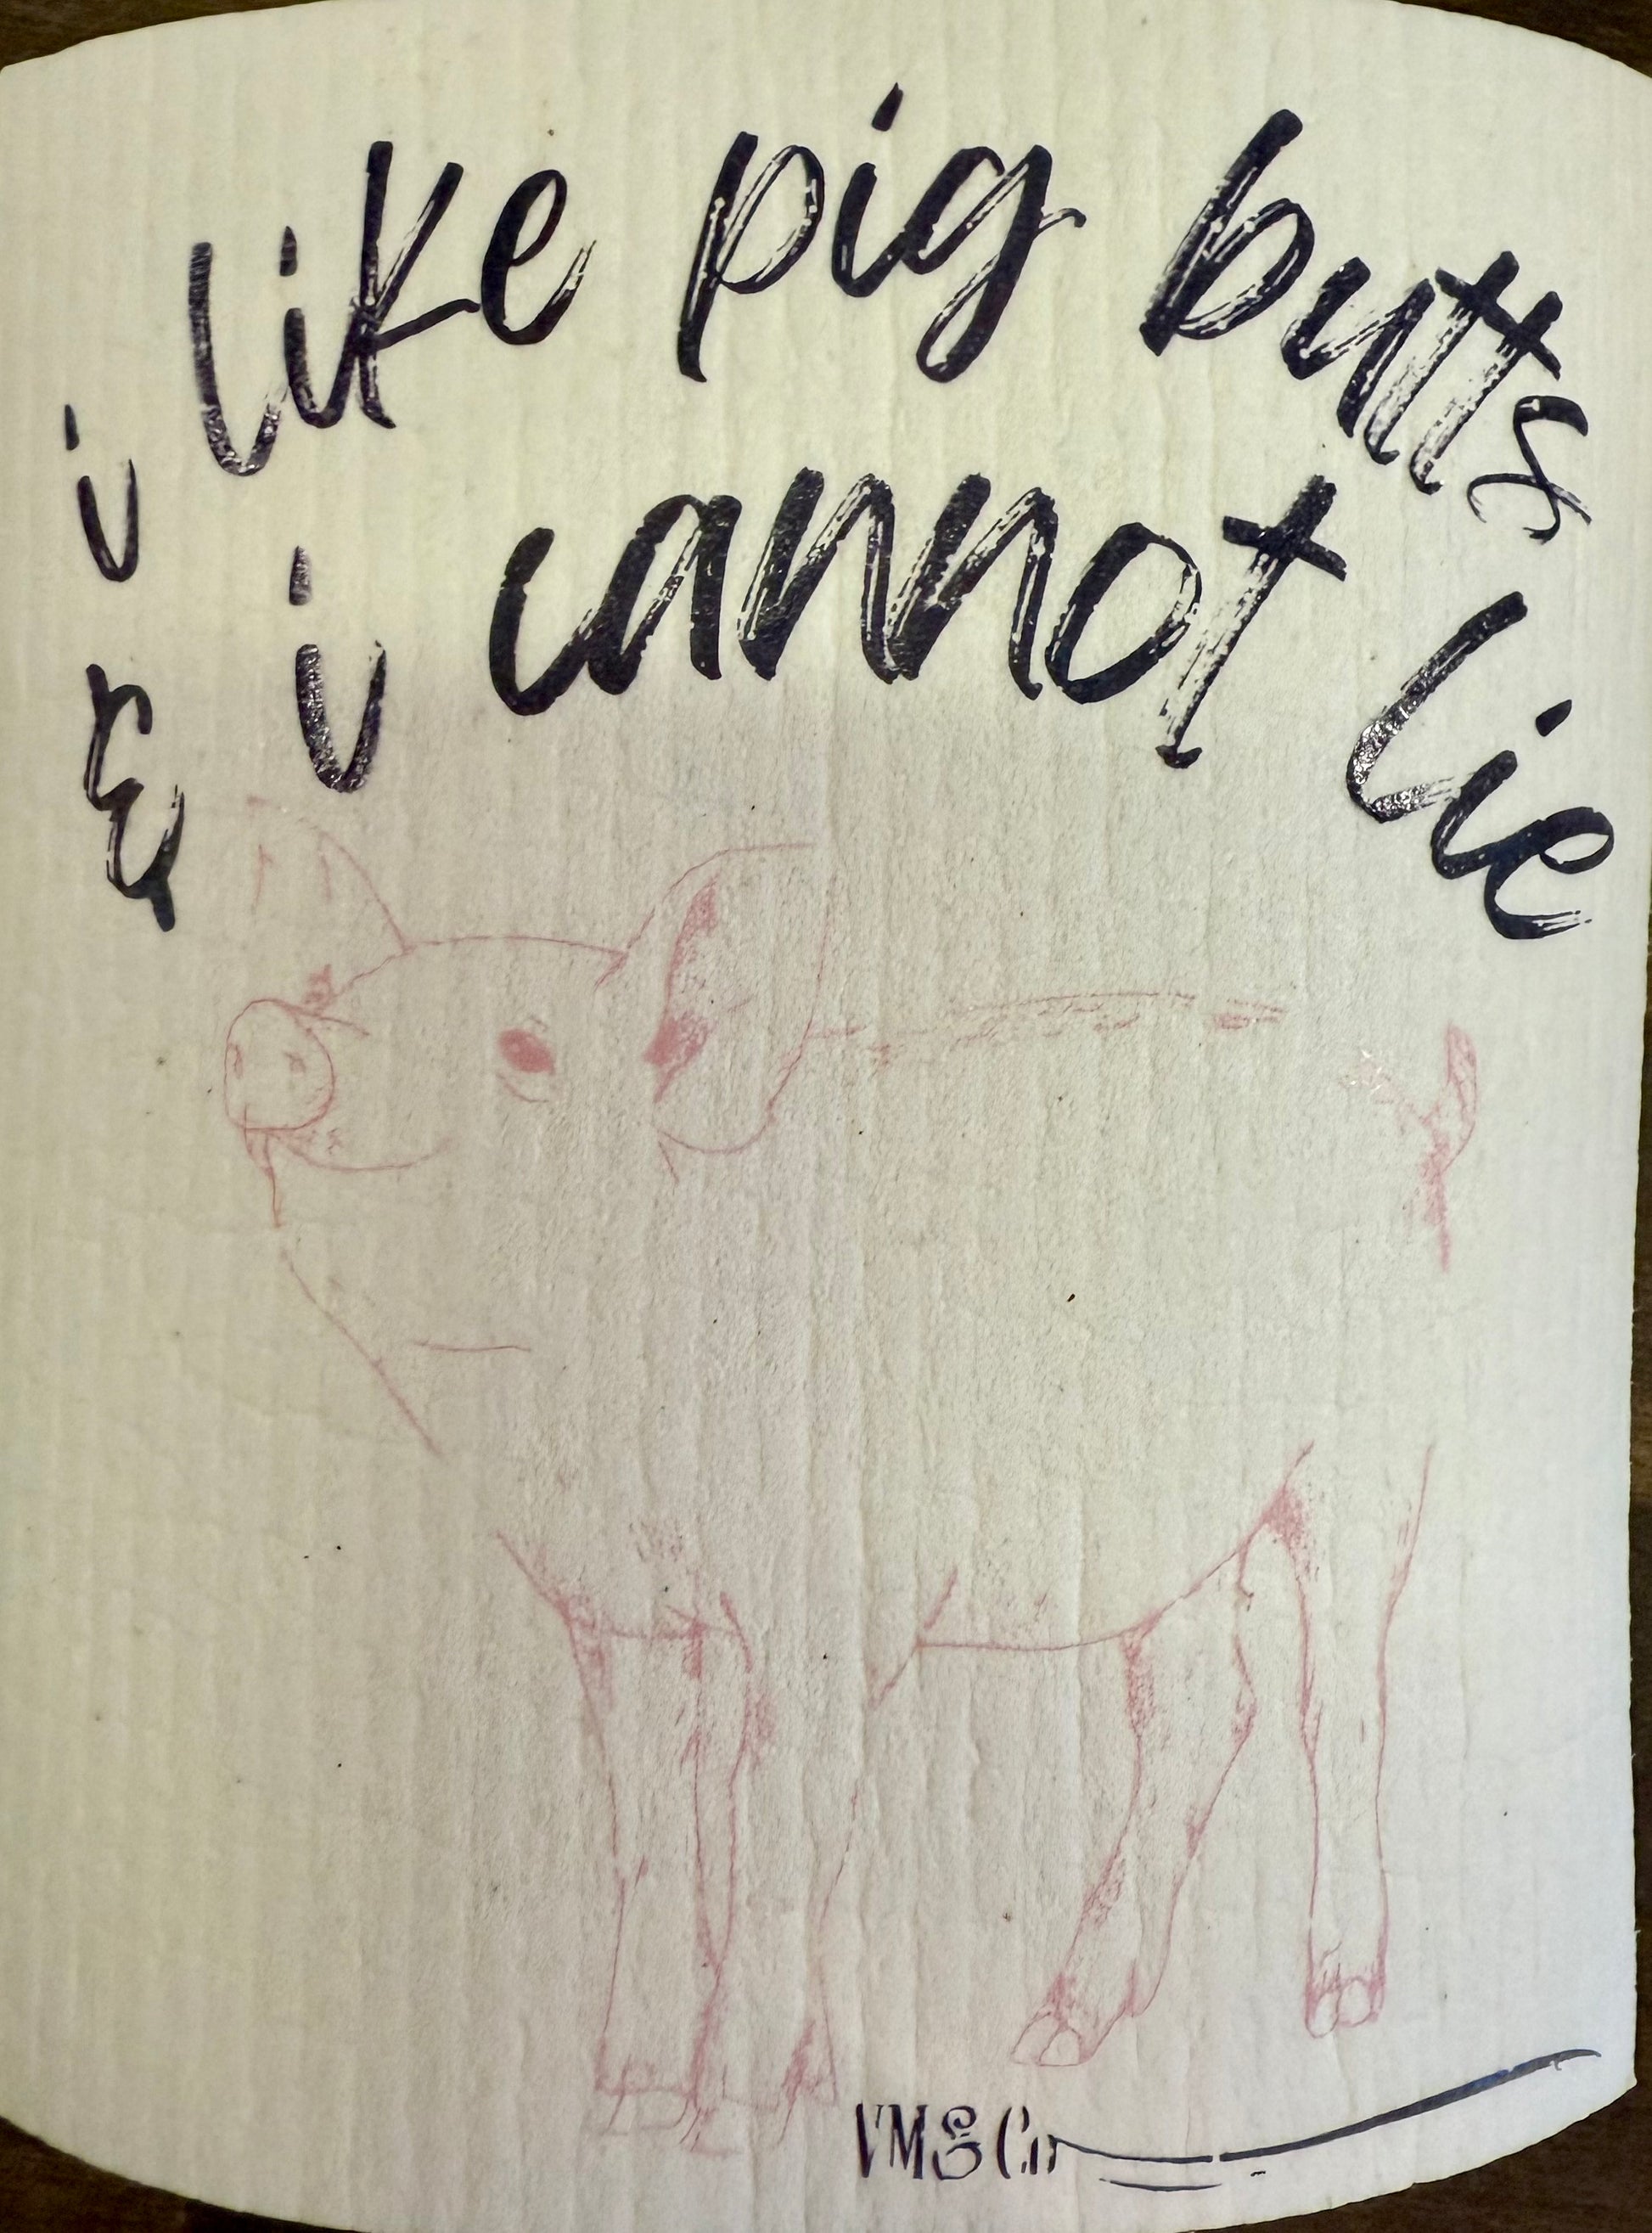 i like pig butts
& i cannot lie
VM&Co